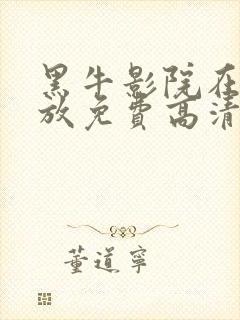 黑牛影院在
放免费高清
董道宁